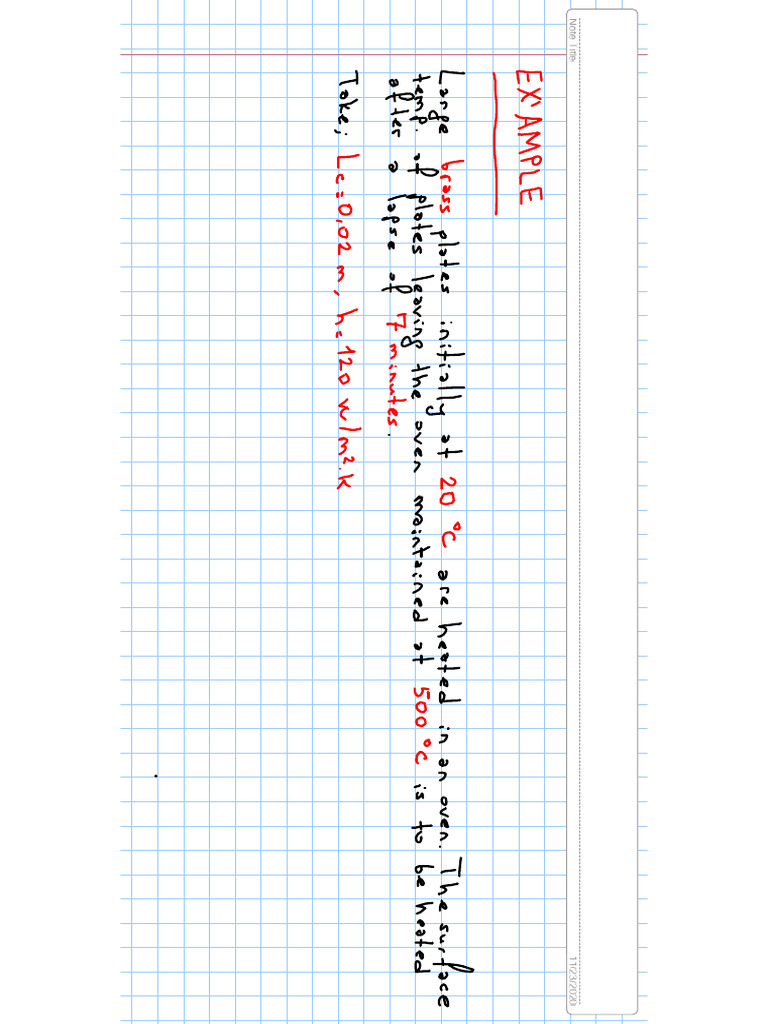 Note Title
11/23/2020
EXAMPLE
Large brass plates initially at 20 °C are heated in an oven. The surface
temp. of plates leaving the oven maintained at 500 °C is to be heated
after a lapse of 7 minutes.
Take; Lc=0,02 m, h=120 W/m².K